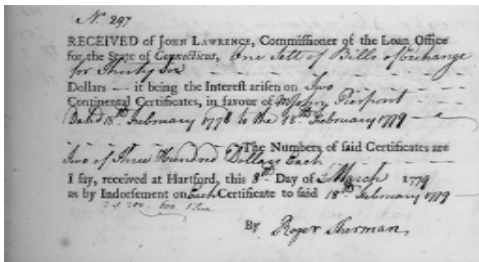 No. 297
RECEIVED of JOHN LAWRENCE, Commissioner of the Loan Office
for the State of Connecticut, One Sett of Bills of Exchange
for Thirty Six
Dollars — it being the Interest arisen on Two
Continental Certificates, in favour of Mr John Pierpont
Dated 18th February 1778 to the 18th February 1779
The Numbers of said Certificates are
Two of Three Hundred Dollars Each
I say, received at Hartford, this 8th Day of March 1779
as by Indorsement on Each Certificate to said 18th February 1779
By Roger Sherman,